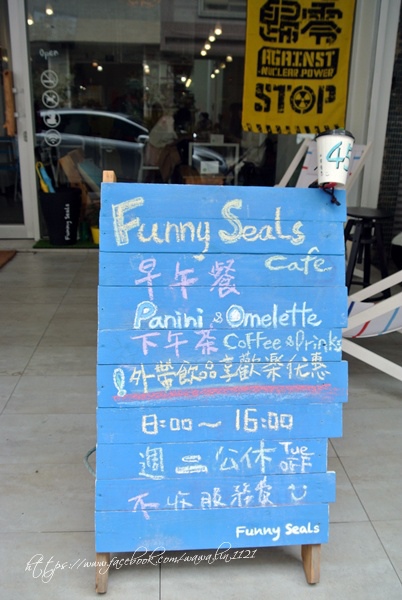 Open
歸零
AGAINST
NUCLEAR POWER
STOP
45
Funny Seals
Funny Seals
Cafe
早午餐
Panini & Omelette
下午茶 Coffee & Drinks
!外帶飲品享歡樂优惠
8:00~16:00
週二公休 Tue OFF
不收服務費
Funny Seals
https://www.facebook.com/wawalin.1121